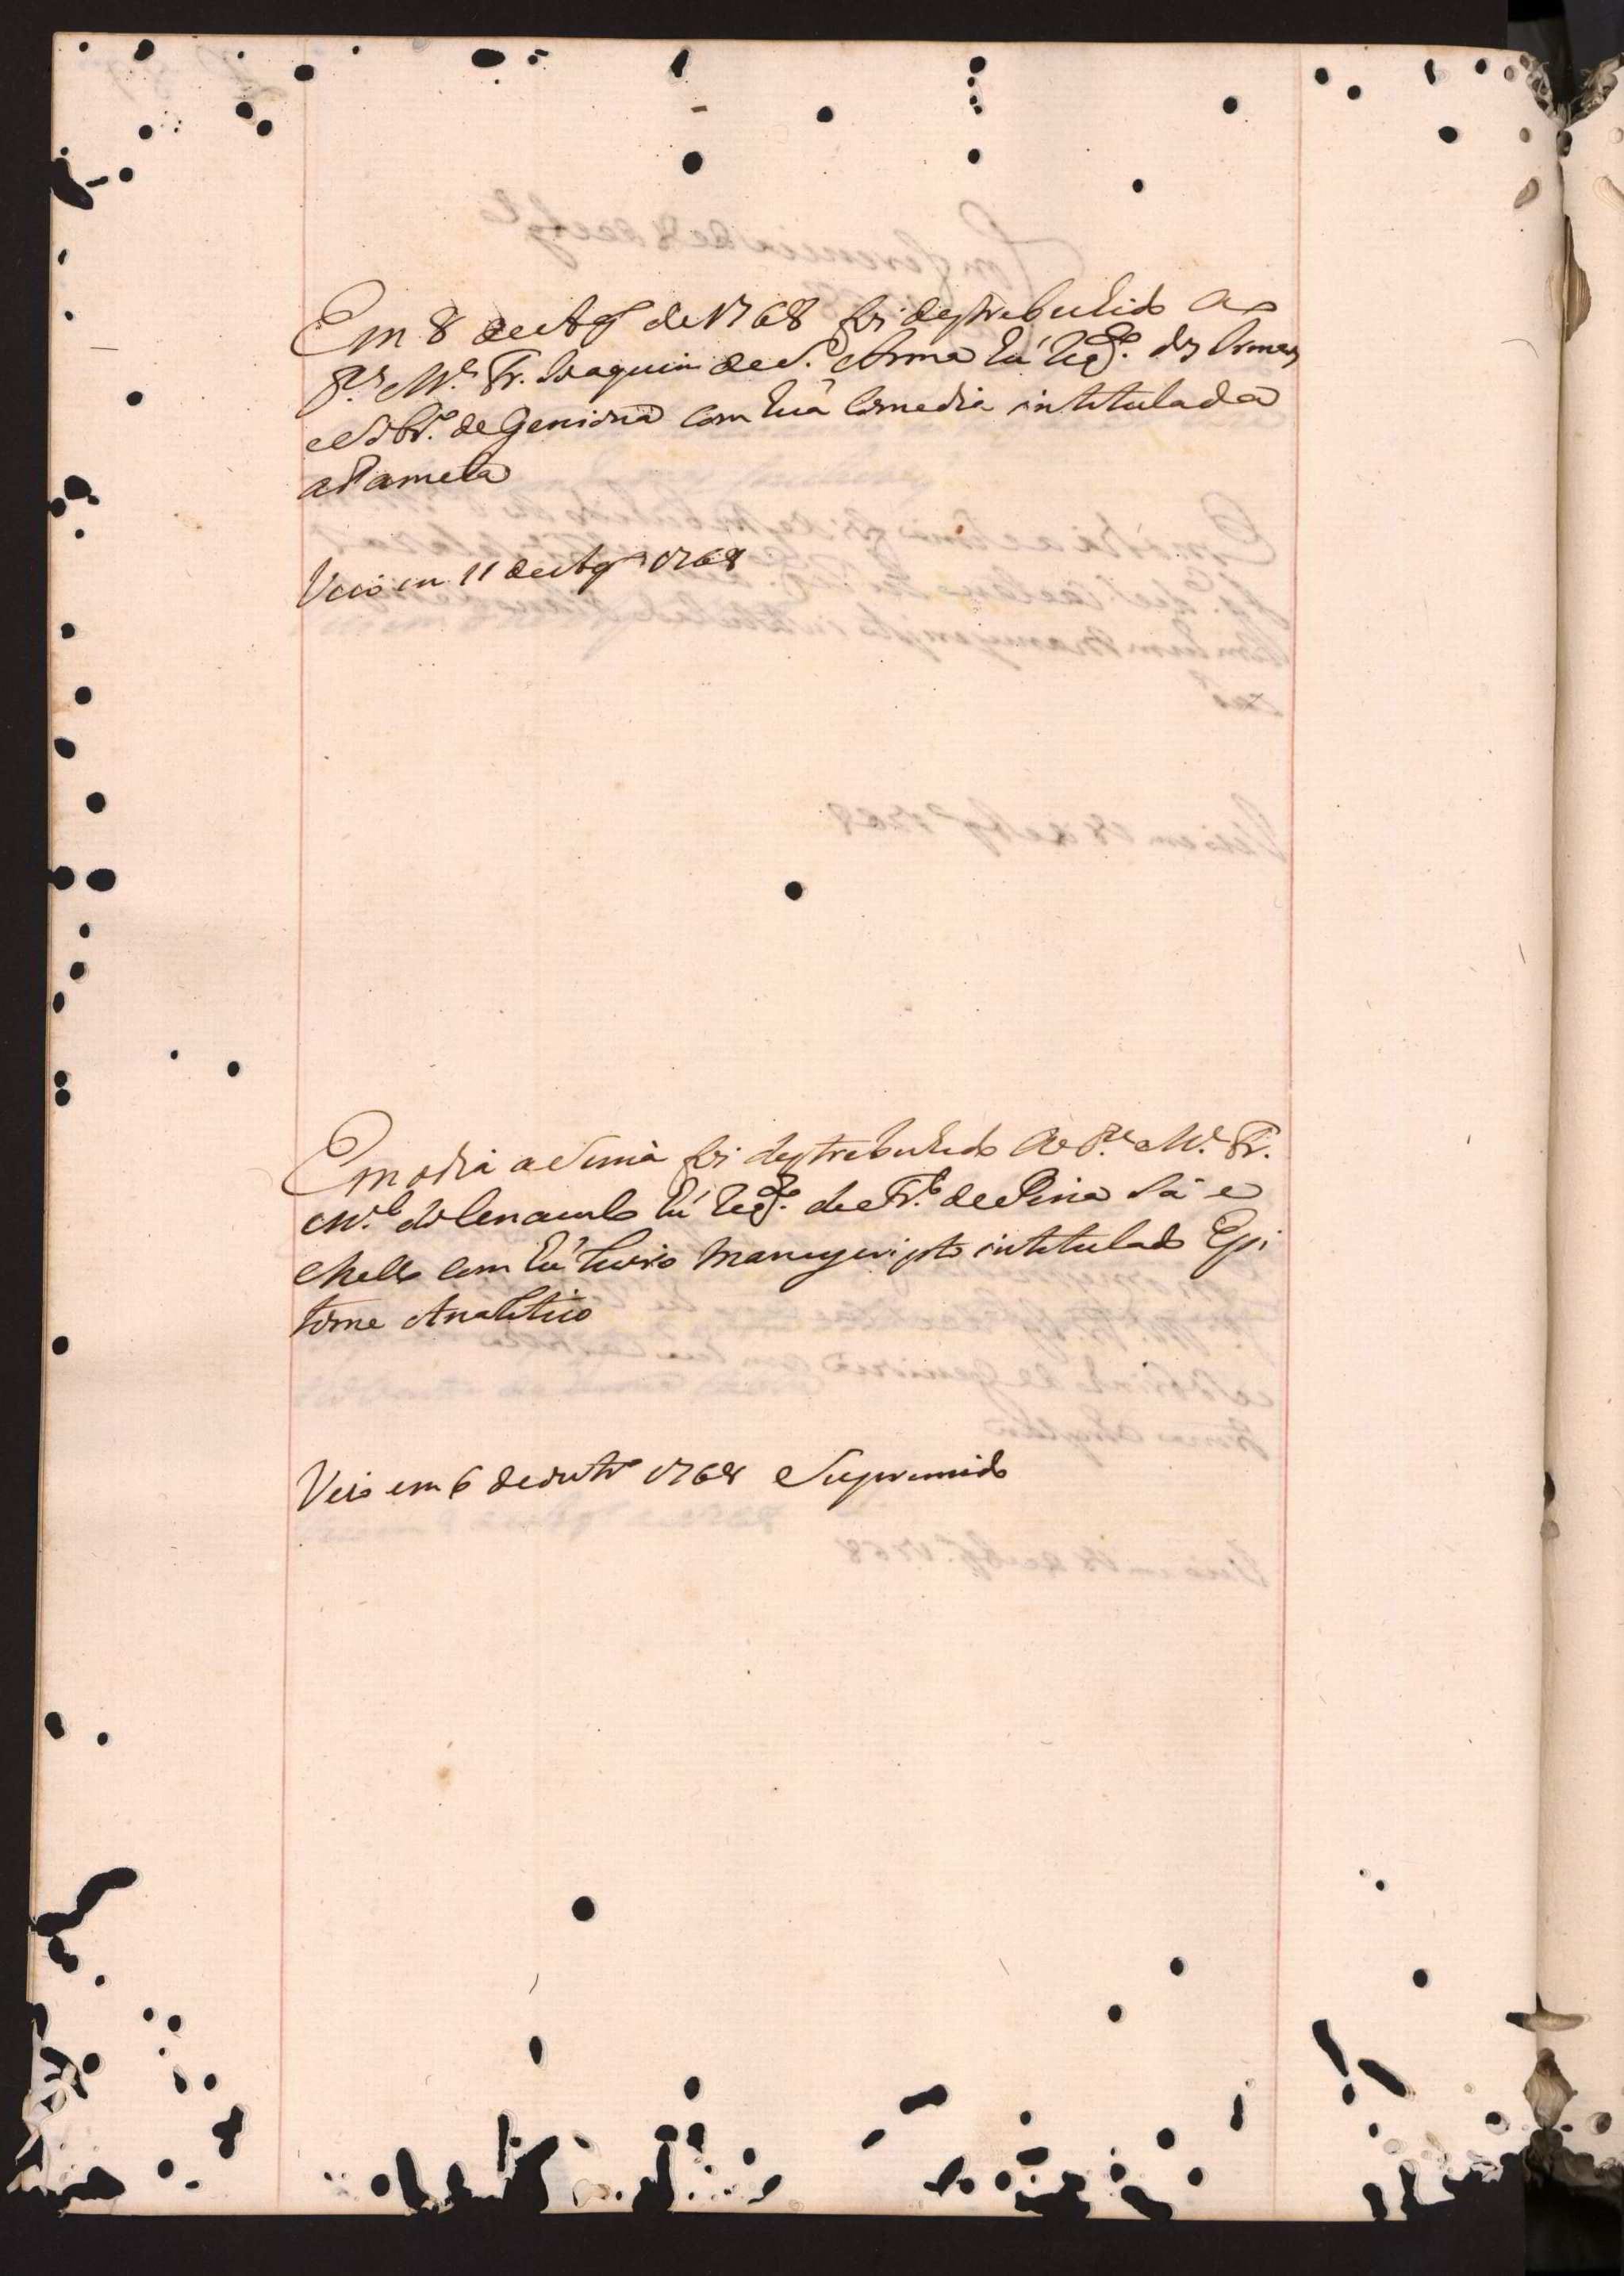 Em 8 de Agto de 1768 foi destrebuhido ao
P.e M.e Fr. Joaquim de S.ta Anna hũ req.to dos Irmãos
e Sobr.o de Genioux com huã Comedia intitulada
a Pamela
Veio em 11 de Agto 1768
Em o dia acima foi destrebuhido ao P.e M.e Fr.
M.el do Cenaculo hũ req.to de Fr.co de Pina Sá e
Mello com hũ Livro manuscripto intitulado Epi
tome Analitico
Veio em 6 de outro 1768 Suprimido